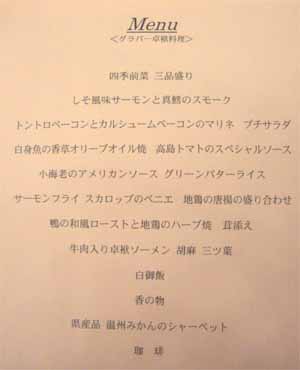 Menu
<グラバー卓袱料理>
四季前菜 三品盛り
しそ風味サーモンと真鱈のスモーク
トントロベーコンとカルシュームベーコンのマリネ プチサラダ
白身魚の香草オリーブオイル焼 高島トマトのスペシャルソース
小海老のアメリカンソース グリーンバターライス
サーモンフライ スカロップのベニエ 地鶏の唐揚の盛り合わせ
鴨の和風ローストと地鶏のハーブ焼 茸添え
牛肉入り卓袱ソーメン 胡麻 三ツ葉
白御飯
香の物
県産品 温州みかんのシャーベット
珈 琲